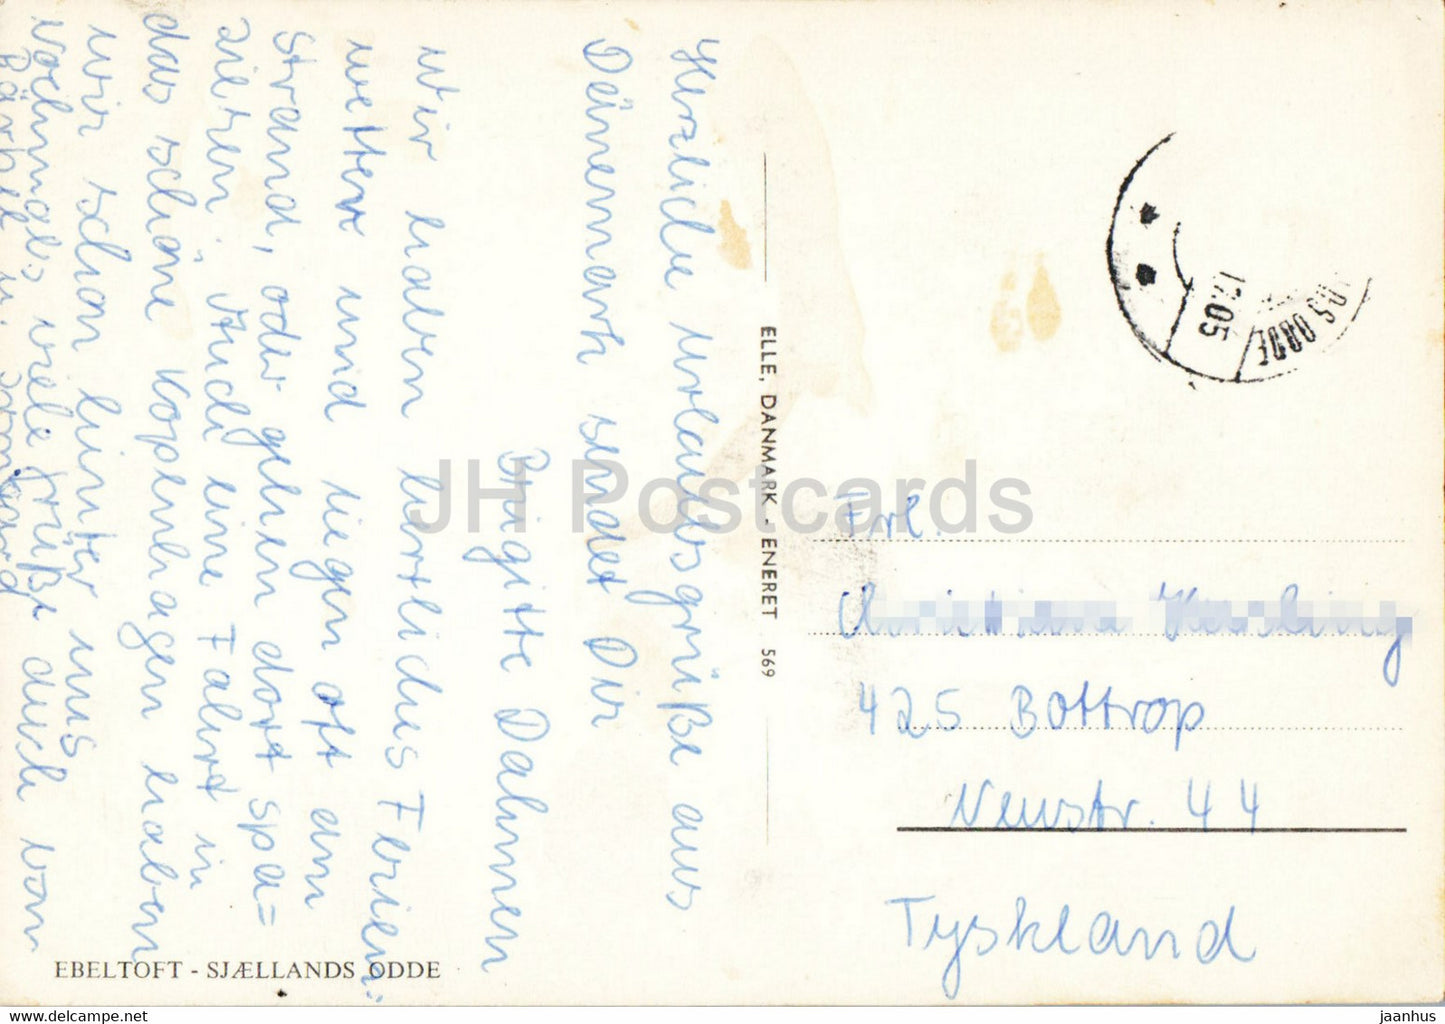 Herzliche Urlaubsgrüße aus
Dänemark sendet Dir
Brigitte Dahmen
Wir haben herrliches Ferien-
wetter und liegen oft am
Strand, oder gehen dort spa=
zieren. Auch eine Fahrt in
das schöne Kopenhagen haben
wir schon hinter uns
Nochmals viele Grüße auch von
Bärbel u.
ELLE, DANMARK - ENERET 569
17.05
ODDE
Frl.
425 Bottrop
Neustr. 44
Tyskland
EBELTOFT - SJÆLLANDS ODDE
JH Postcards
https://www.ebay.com/str/jhpostcards/store
jaanhus